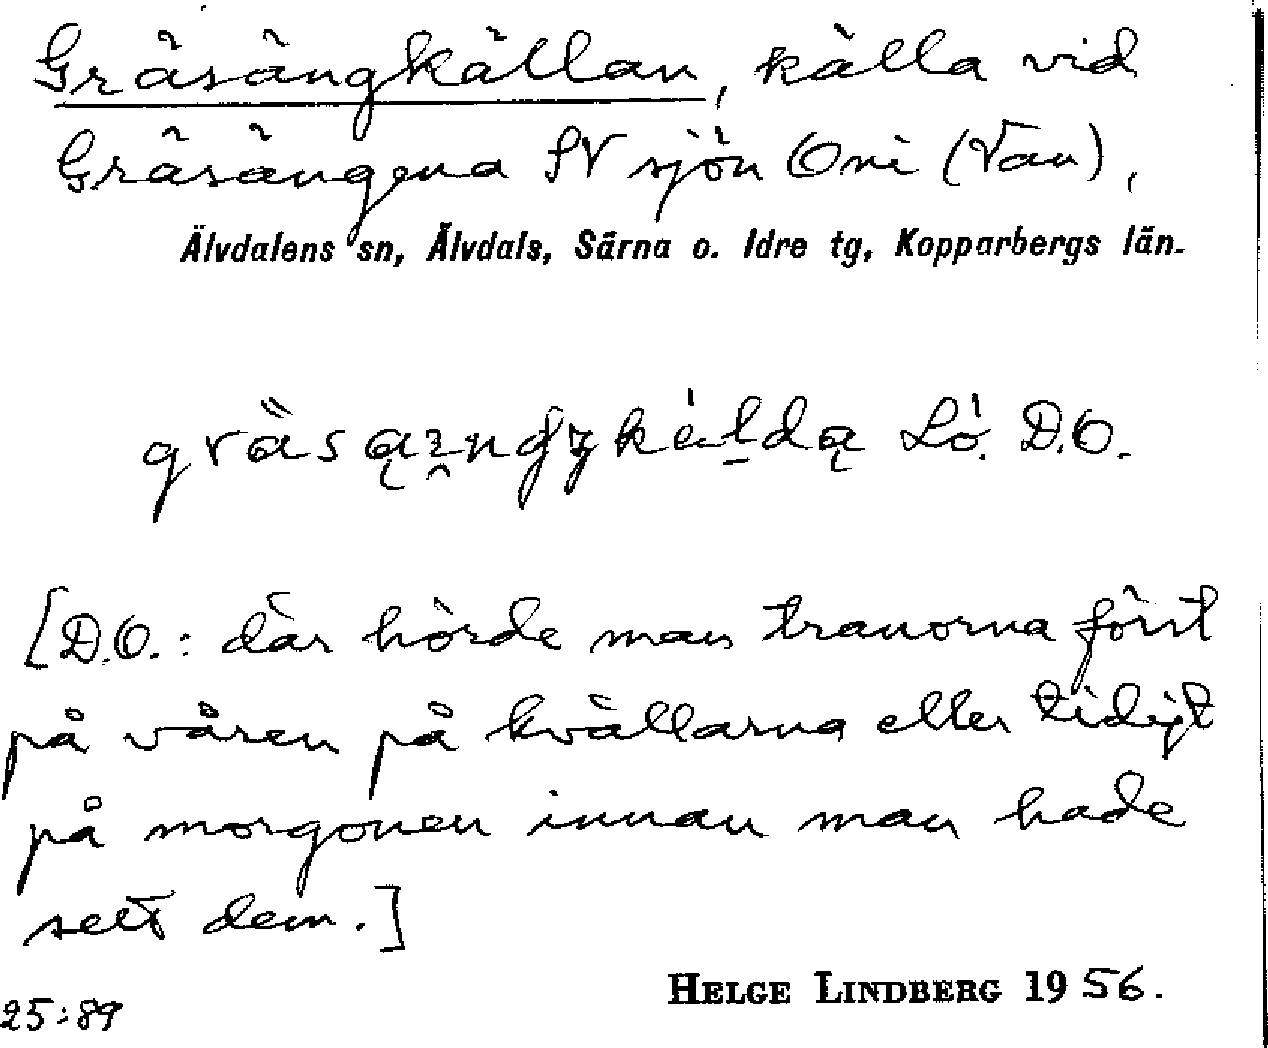 Gräsängkällan, källa vid
Gräsängena SV sjön Oni (Van),
Älvdalens sn, Älvdals, Särna o. Idre tg, Kopparbergs län.
Lò. D.O.
[D.O.: där hörde man tranorna först
på våren på kvällarna eller tidigt
på morgonen innan man hade
sett dem.]
HELGE LINDBERG 1956.
25:89